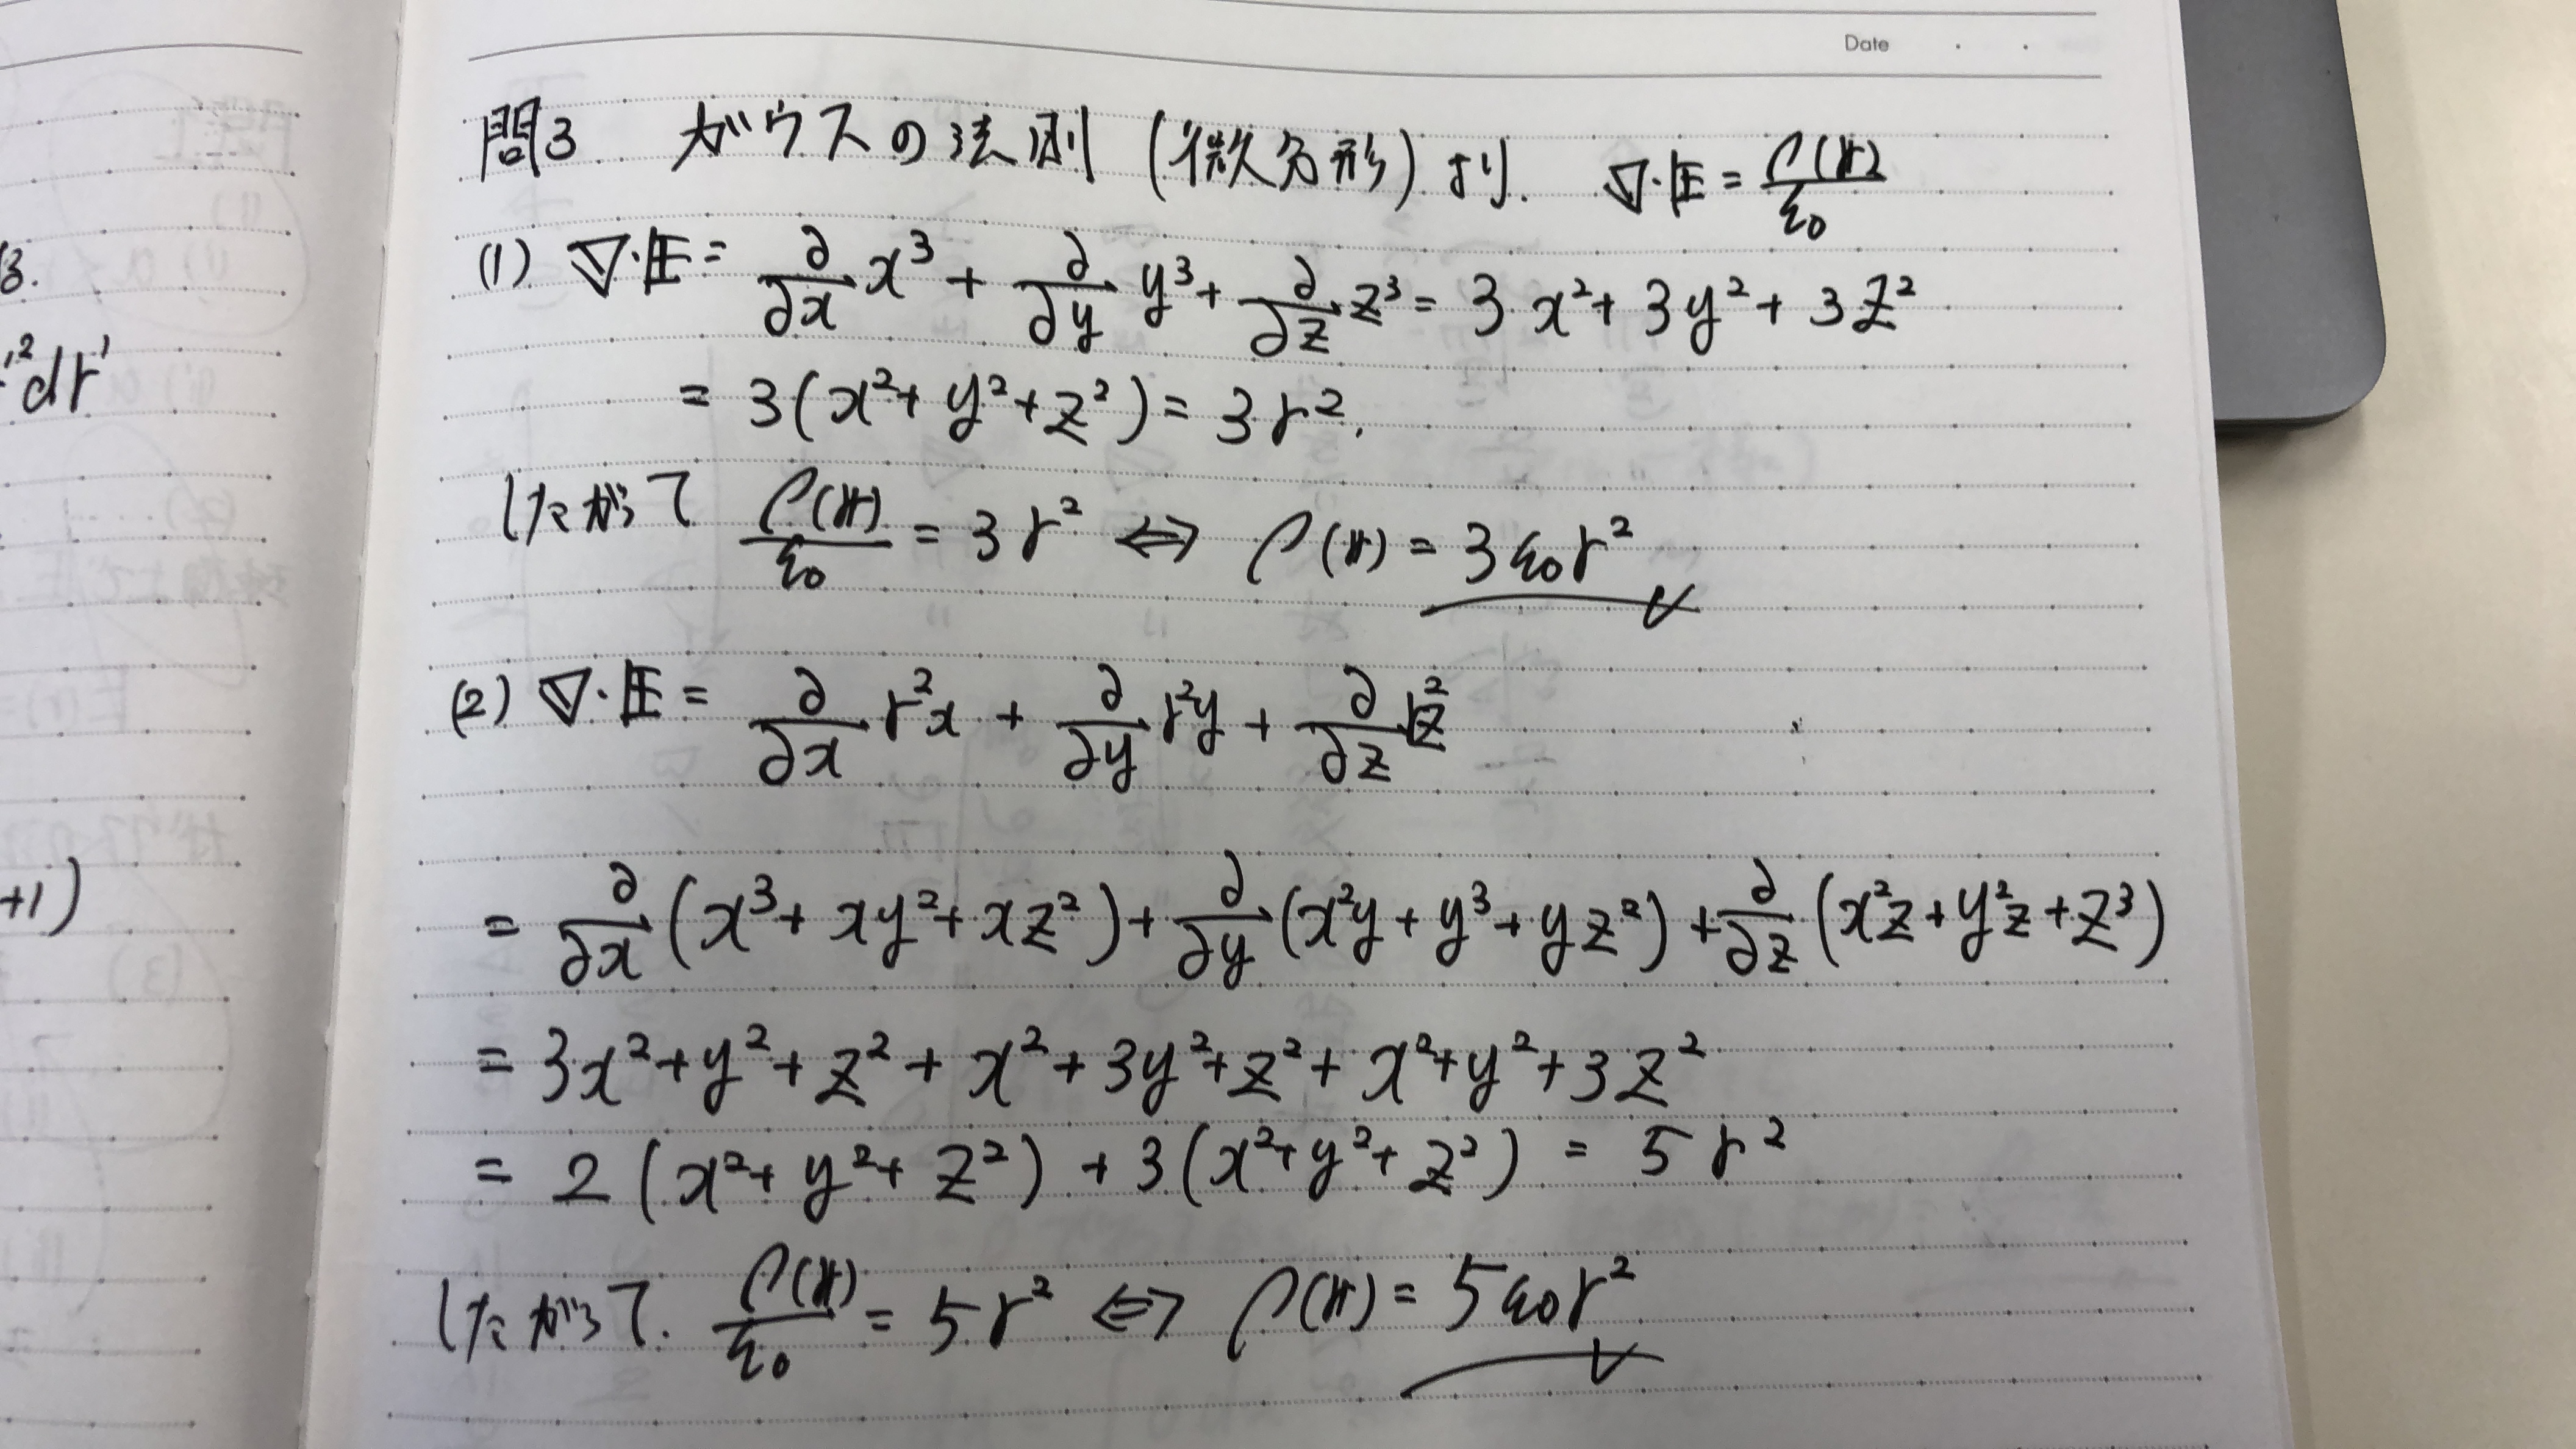 Date
問3 ガウスの法則 (微分形) より. ∇·𝔼 = ρ(𝕣)/ε₀
(1) ∇·𝔼 = ∂/∂x x³ + ∂/∂y y³ + ∂/∂z z³ = 3x² + 3y² + 3z²
= 3(x² + y² + z²) = 3r².
したがって ρ(𝕣)/ε₀ = 3r² ⇔ ρ(𝕣) = 3ε₀r²
(2) ∇·𝔼 = ∂/∂x r²x + ∂/∂y r²y + ∂/∂z r²z
= ∂/∂x (x³ + xy² + xz²) + ∂/∂y (x²y + y³ + yz²) + ∂/∂z (x²z + y²z + z³)
= 3x² + y² + z² + x² + 3y² + z² + x² + y² + 3z²
= 2(x² + y² + z²) + 3(x² + y² + z²) = 5r²
したがって. ρ(𝕣)/ε₀ = 5r² ⇔ ρ(𝕣) = 5ε₀r²
3.
'²dr'
+1)